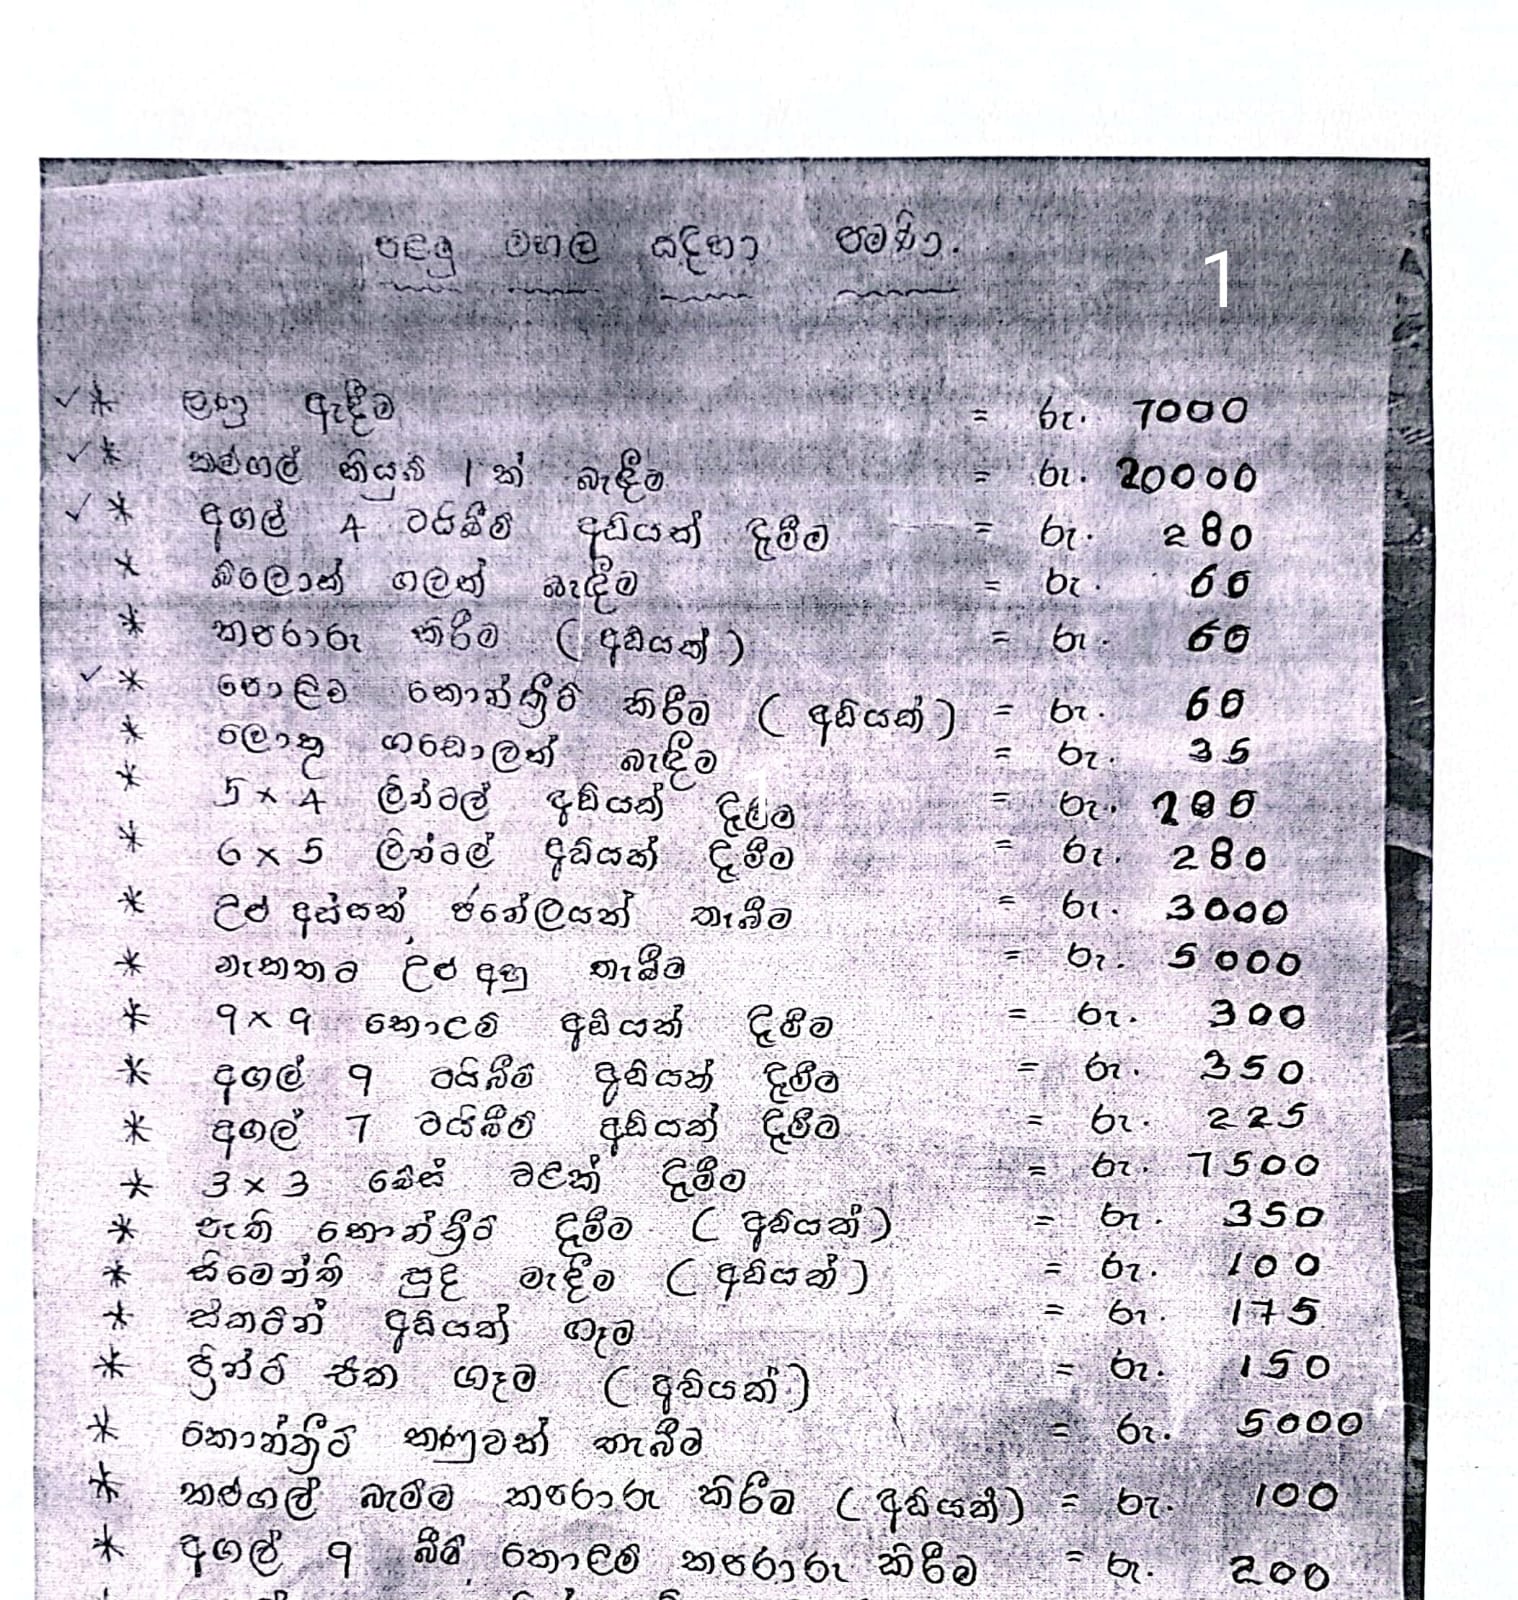 පළමු මහල සඳහා පමණි.
1
✓ * ලණු ඇදීම = රු. 7000
✓ * කළුගල් කියුබ් 1 ක් බැඳීම = රු. 20000
✓ * අඟල් 4 ටයිබීම් අඩියක් දැමීම = රු. 280
* බ්ලොක් ගලක් බැඳීම = රු. 60
* කපරාරු කිරීම (අඩියක්) = රු. 60
✓ * පොළව කොන්ක්‍රීට් කිරීම (අඩියක්) = රු. 60
* ලොකු ගඩොලක් බැඳීම = රු. 35
* 5 x 4 ලින්ටල් අඩියක් දැමීම = රු. 200
* 6 x 5 ලින්ටල් අඩියක් දැමීම = රු. 280
* උළු අස්සක් ජනේලයක් තැබීම = රු. 3000
* උළු අහු තැබීම = රු. 5000
* 9 x 9 කොළම් අඩියක් දැමීම = රු. 300
* අඟල් 9 ටයිබීම් අඩියක් දැමීම = රු. 350
* අඟල් 7 ටයිබීම් අඩියක් දැමීම = රු. 225
* 3 x 3 බේස් වළක් දැමීම = රු. 7500
* පැති කොන්ක්‍රීට් දැමීම (අඩියක්) = රු. 350
* සිමෙන්ති පුද මැදීම (අඩියක්) = රු. 100
* ස්කටින් අඩියක් ගෑම = රු. 175
* ප්‍රින්ට් එක ගෑම (අඩියක්) = රු. 150
* කොන්ක්‍රීට් කණුවක් තැබීම = රු. 5000
* කළුගල් බැම්ම කපරාරු කිරීම (අඩියක්) = රු. 100
* අඟල් 9 බීම් කොළම් කපරාරු කිරීම = රු. 200